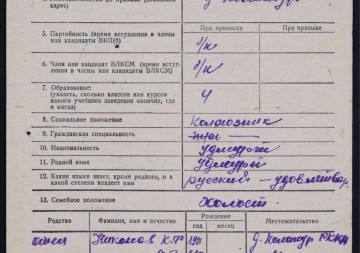 адрес)
При приписке
При призыве
5. Партийность (время вступления в члены
или кандидаты ВКП(б)
б/п
6. Член или кандидат ВЛКСМ (время вступ-
ления в члены или кандидаты ВЛКСМ)
б/п
7. Образование:
(указать, сколько классов или курсов
какого учебного заведения окончил, где
и когда)
4
8. Социальное положение
Колхозник
9. Гражданская специальность
10. Национальность
удмурт
11. Родной язык
12. Какие языки знает, кроме родного, и в
какой степени владеет ими
русский - удовлетвор.
13. Семейное положение
Холост.
Родство
Фамилия, имя и отчество
Рождение
год
месяц
Местожительство